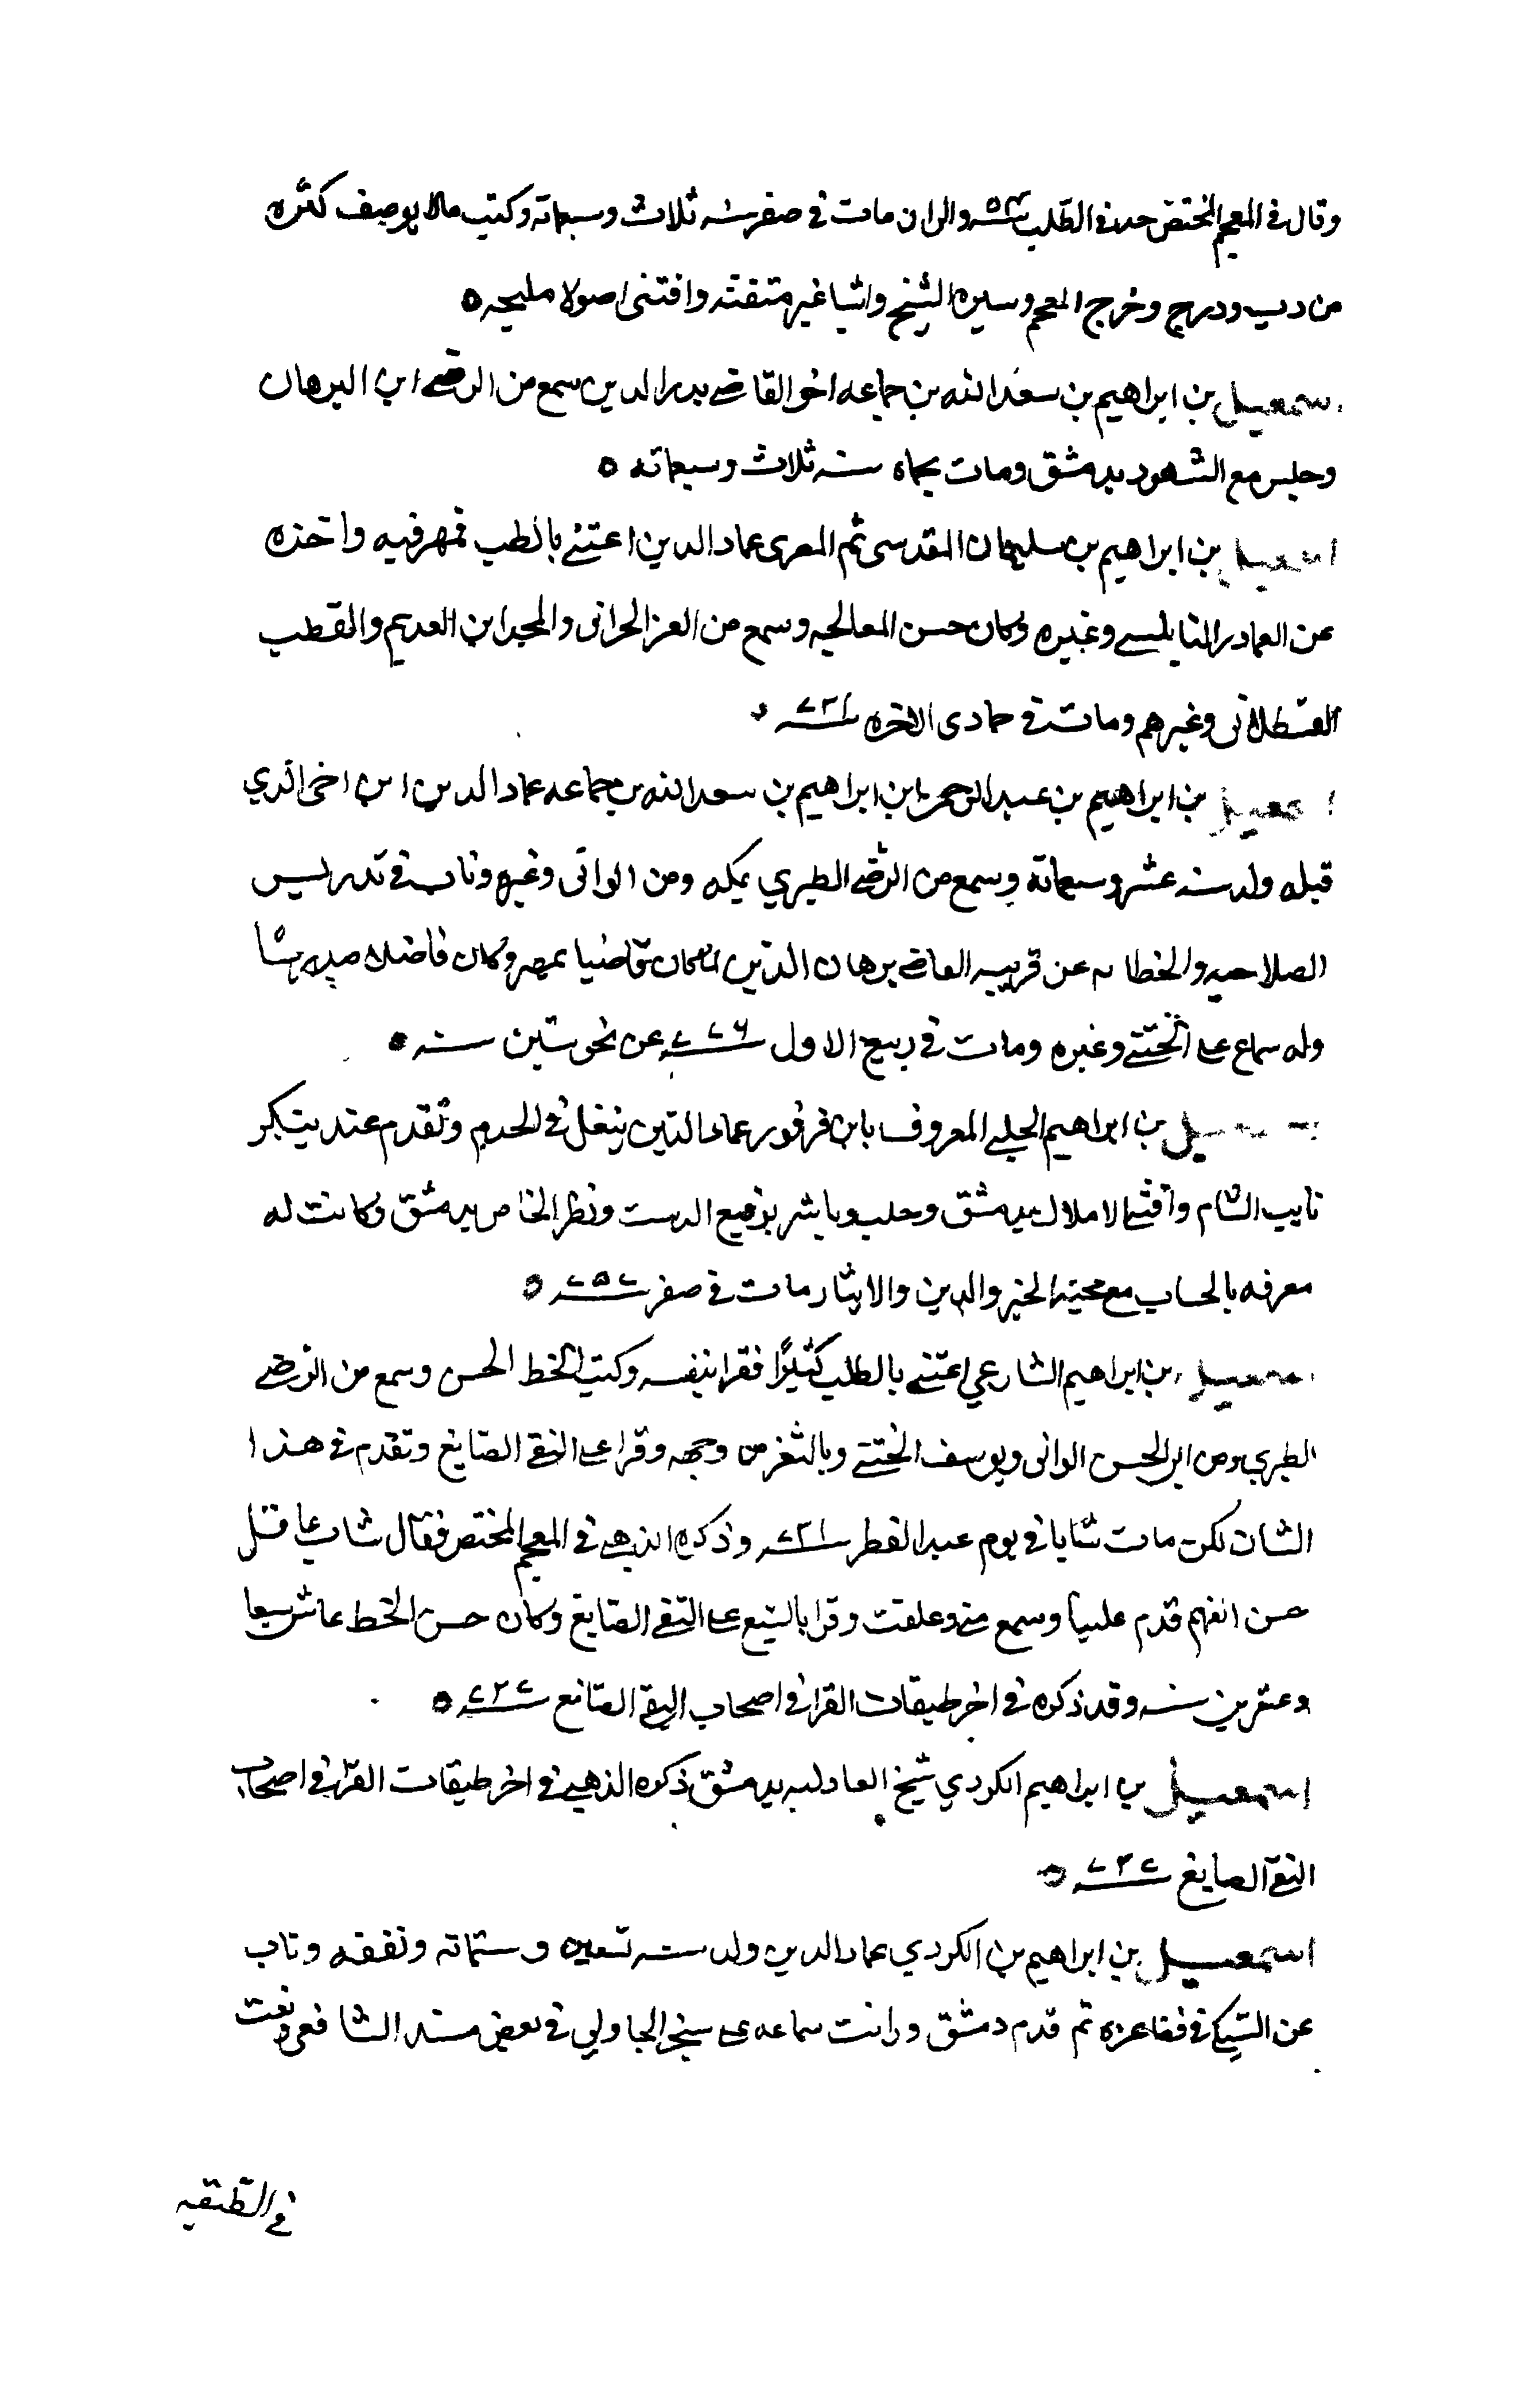 وقال في المعجم المختص جد في الطلب سنة ٥٤ والى ان مات في صفر سنه ثلاث وسبعماته وكتب مالا يوصف كثره
من دب ودرج وخرج المعجم وسيره الشيخ واشيا غير متقنه واقتنى اصولا مليحه ٥
اسمعيل بن ابراهيم بن سعد الله بن جماعه اخو القاضي بدر الدين سمع من الرضي ابن البرهان
وجلس مع الشهود بدمشق ومات بحماه سنه ثلاث وسبعماته ٥
اسمعيل بن ابراهيم بن سليمان المقدسي ثم المصري عماد الدين اعتنى بالطب فمهر فيه واخذه
عن العماد النابلسي وغيره وكان حسن المعالجه وسمع من العز الحراني والمجد ابن العديم والقطب
القسطلاني وغيرهم ومات في جمادى الاخره
اسمعيل بن ابراهيم بن عبد الرحمن ابن ابراهيم بن سعد الله بن جماعه عماد الدين ابن اخي الذي
قبله ولد سنه عشر وسبعماتة وسمع من الرضي الطبري بمكه ومن الواني وغيره وناب في تدريس
الصلاحيه والخطابه عن قريبه القاضي برهان الدين لما كان قاضيا بمصر وكان فاضلا
وله سماع على الختني وغيره ومات في ربيع الاول ٧٧٦ عن نحو ستين سنه ٥
اسمعيل بن ابراهيم الحلبي المعروف بابن فرفور عماد الدين تنقل في الخدم وتقدم عند
نايب الشام واقتنى الاملاك بدمشق وحلب وباشر توقيع الدست ونظر الخاص بدمشق وكانت له
معرفه بالحساب مع محبة الخير والدين والايثار مات في صفر ٧٥٧ ٥
اسمعيل بن ابراهيم الشارعي اعتنى بالطلب كثيرًا فقرا بنفسه وكتب الخط الحسن وسمع من الرضي
الطبري ومن ابي الحسن الواني ويوسف الختني وبالثغر من وجهه وقرا على التقي الصايغ وتقدم في هذا
الشان لكن مات شابا في يوم عيد الفطر وذكره الذهبي في المعجم المختص فقال شاب عاقل
حسن الفهم قدم علينا وسمع مني وعلقت وقرا بالسبع على التقي الصايغ وكان حسن الخط عاش سبعا
وعشرين سنه وقد ذكره في اخر طبقات القرا في اصحاب التقي الصائع ٧٢٧ ٥
اسمعيل بن ابراهيم الكردي شيخ العادليه بدمشق ذكره الذهبي في اخر طبقات القرا في اصحاب
التقي الصايغ ٧٢٧ ٥
اسمعيل بن ابراهيم بن الكردي عماد الدين ولد سنه تسعين وستماته وتفقه وناب
عن السبكي في قضا غزه ثم قدم دمشق ورايت سماعه على سنجر الجاولي في بعض مسند الشافعي ونعت
في الطبقه